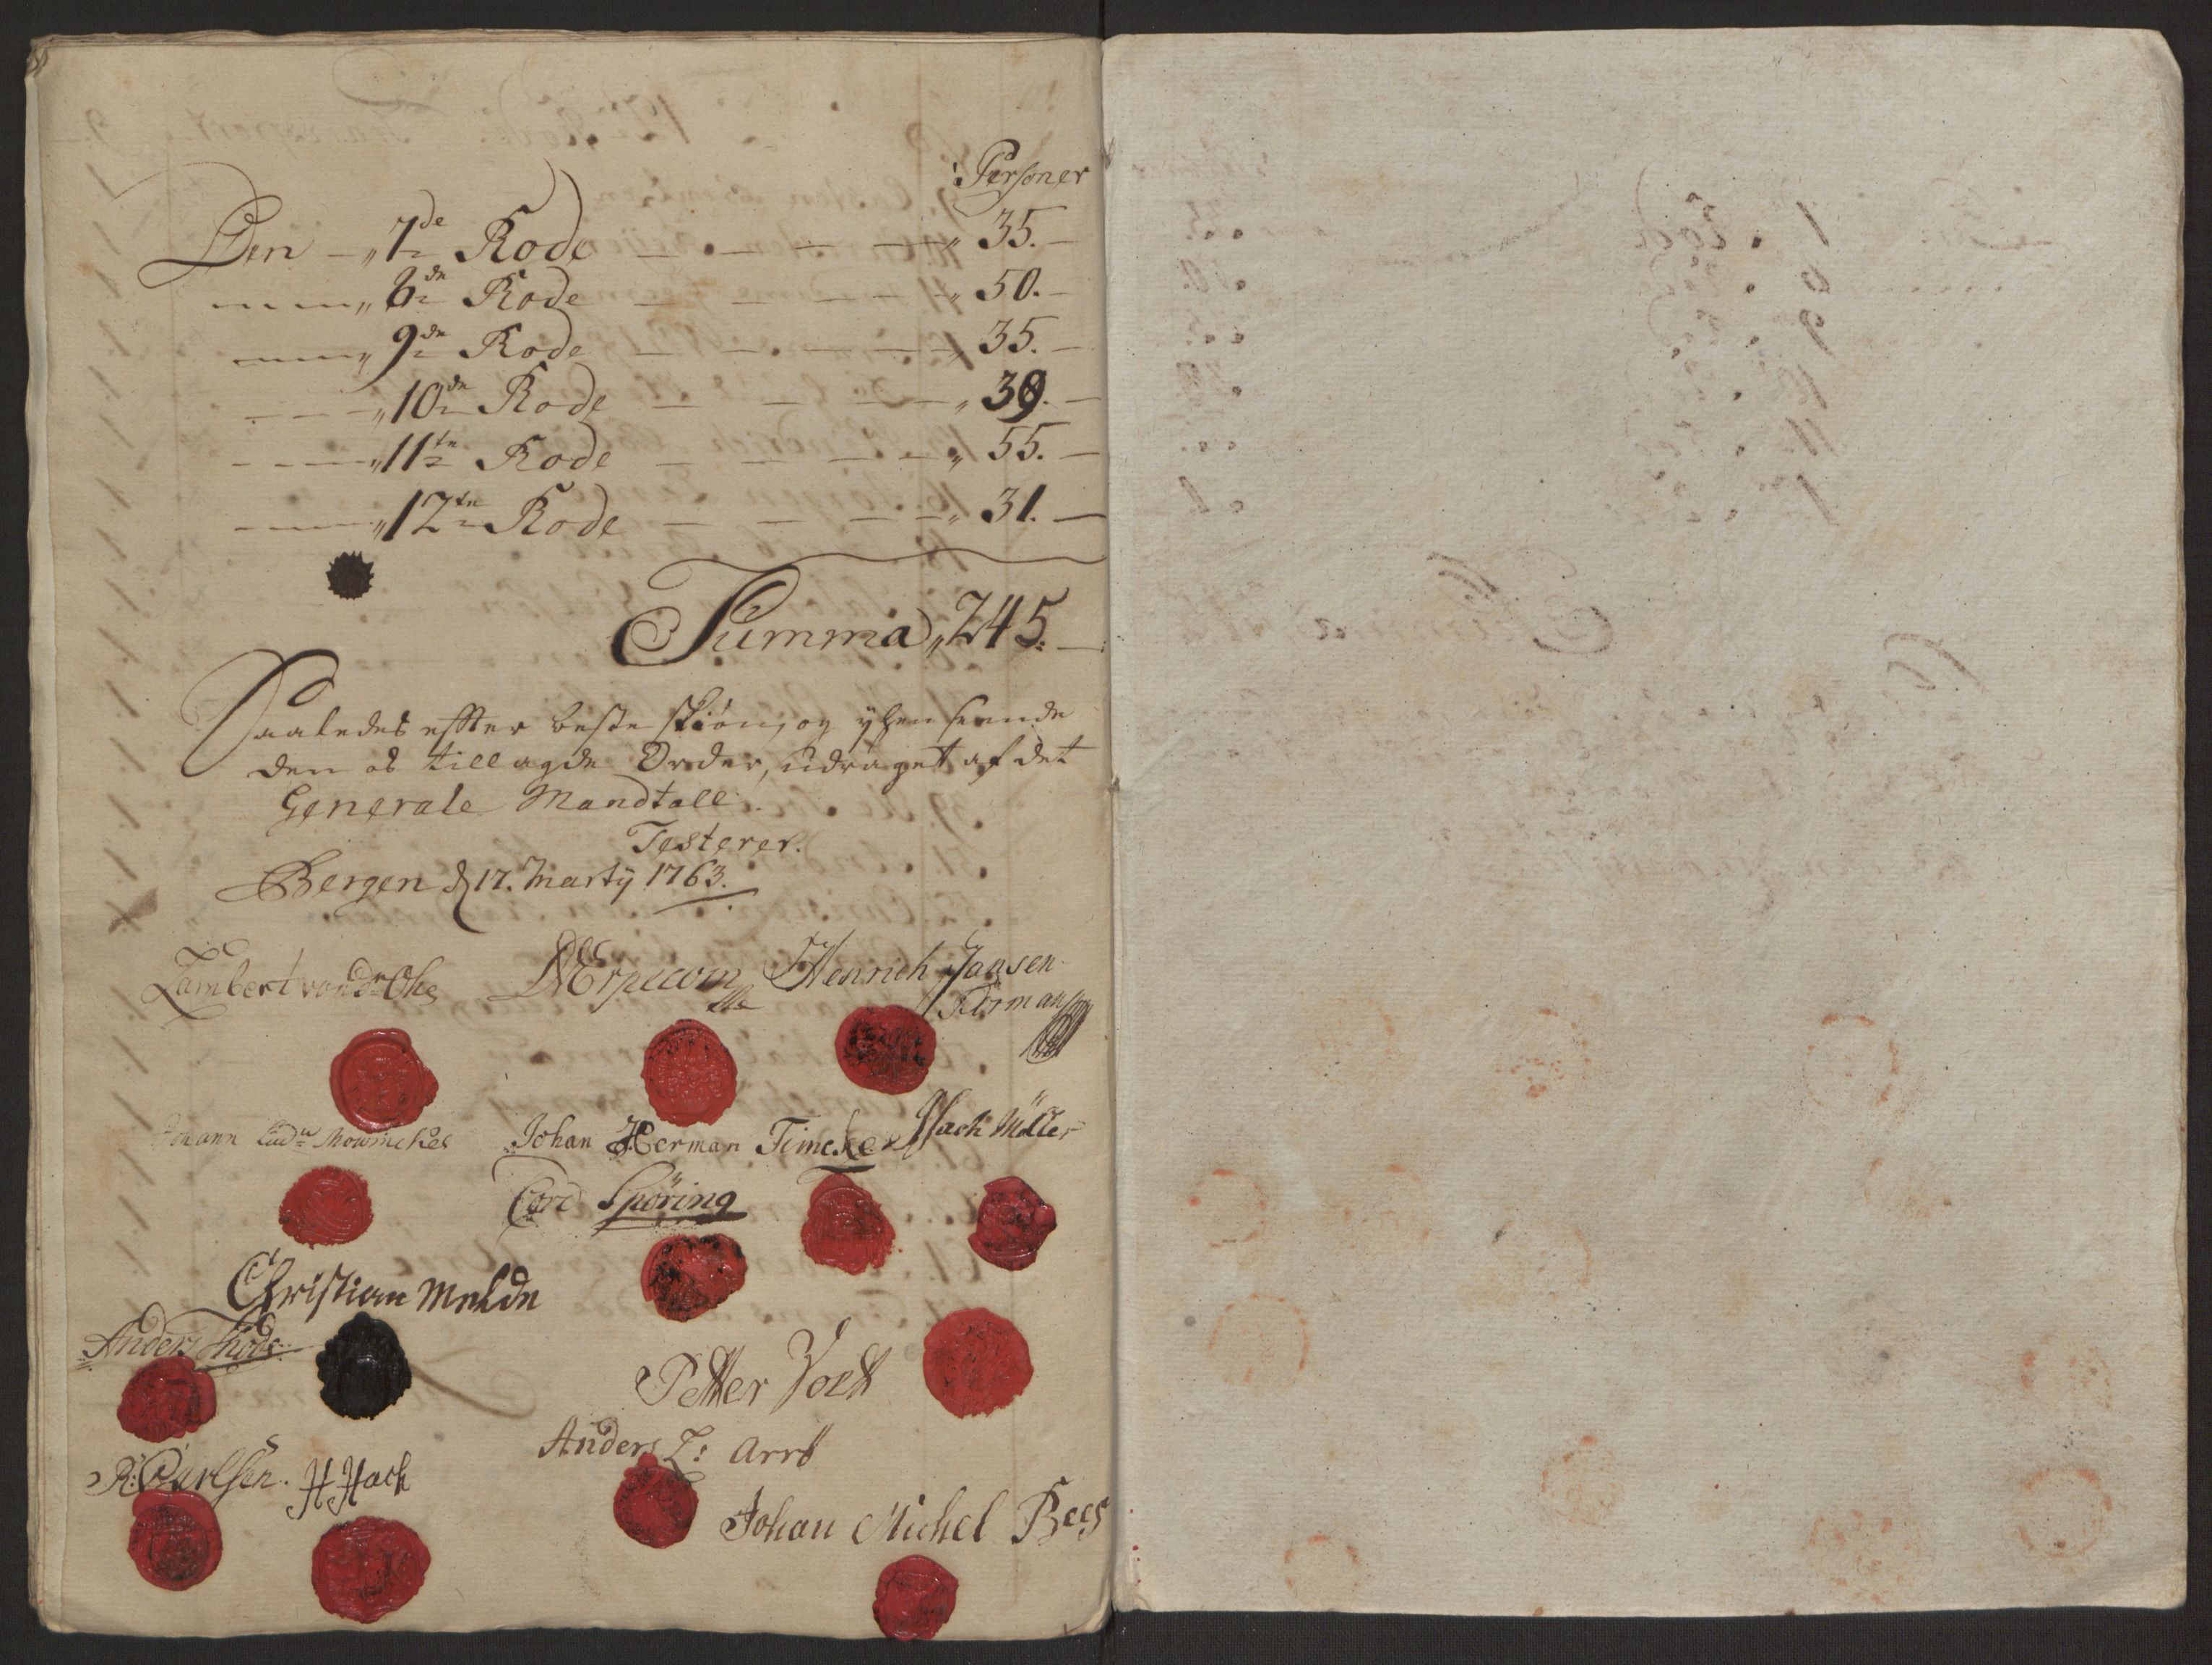 Personer
Den 7de Rode 35.
8de Rode 50.
9de Rode 35.
10de Rode 39.
11te Rode 55.
12te Rode 31.
Summa 245.
Saaledes effter beste skiøn, og
den os tillagde Order, udraget af det
Generale Mandtall.
Testerer.
Bergen d 17. Marty 1763.
Lambert von der Ohe Henrich Jansen
Formann
Johann Ludw Mowinckel Johan Herman Timcke Hack Möller
Cord Spöring
Christian Mehlde
Anders Thode
Petter Voett
Anders L:
R: Carlsen. H Hack
Johan Michel Bees